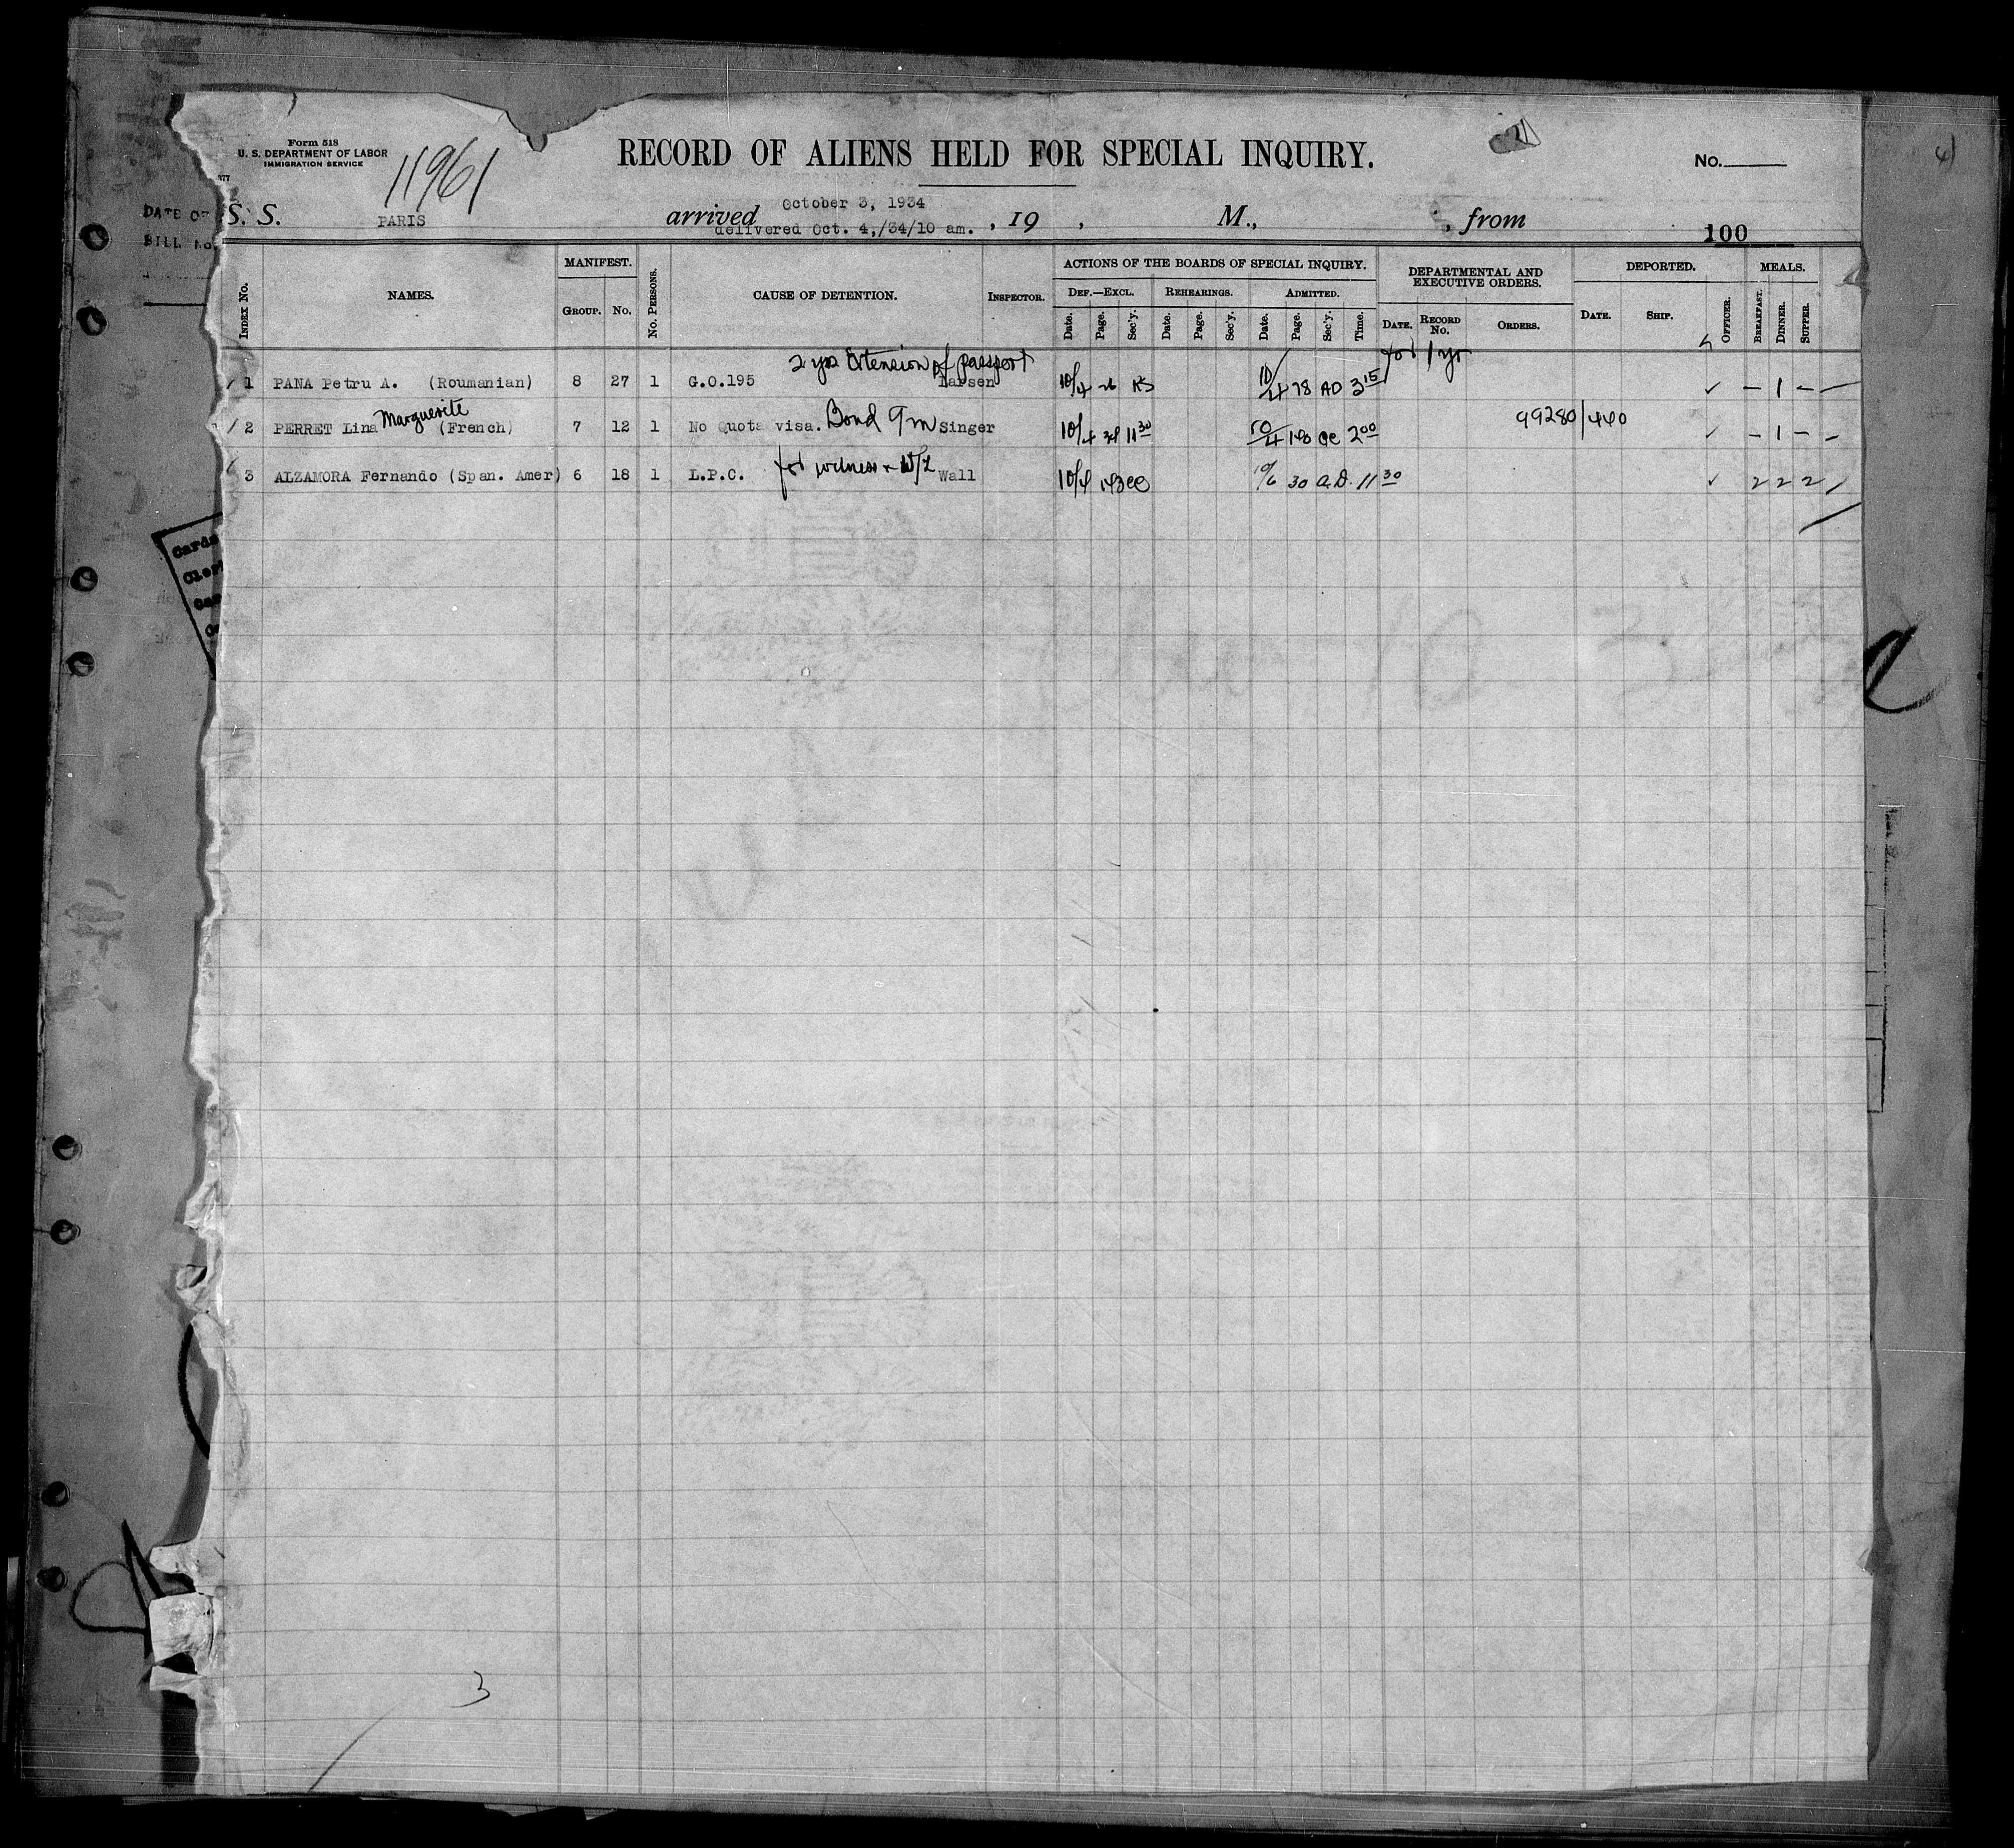 Form 518
U. S. DEPARTMENT OF LABOR
IMMIGRATION SERVICE
11961
RECORD OF ALIENS HELD FOR SPECIAL INQUIRY.
No.
DATE OF
BILL No.
S. S. PARIS arrived October 3, 1934 , 19 , M., , from
delivered Oct. 4,/34/10 am.
100
INDEX No. NAMES. MANIFEST. GROUP. No. No. PERSONS. CAUSE OF DETENTION. INSPECTOR. ACTIONS OF THE BOARDS OF SPECIAL INQUIRY. DEF.—EXCL. Date. Page. Sec'y. REHEARINGS. Date. Page. Sec'y. ADMITTED. Date. Page. Sec'y. Time. DEPARTMENTAL AND EXECUTIVE ORDERS. DATE. RECORD No. ORDERS. DEPORTED. DATE. SHIP. OFFICER. MEALS. BREAKFAST. DINNER. SUPPER.
2 yrs Extension of passport for 1 yr
1 PANA Petru A. (Roumanian) 8 27 1 G.O.195 Larsen 10/4 26 10/4 78 AD 3 15 ✓ – 1 –
Marguerite
2 PERRET Lina (French) 7 12 1 No Quota visa. Bond 9m Singer 10/4 11 30 10/4 2 00 99280/440 ✓ – 1 – –
3 ALZAMORA Fernando (Span. Amer) 6 18 1 L.P.C. for witness Wall 10/4 10/6 30 A.D. 11 30 ✓ 2 2 2
Cards
Cler
3